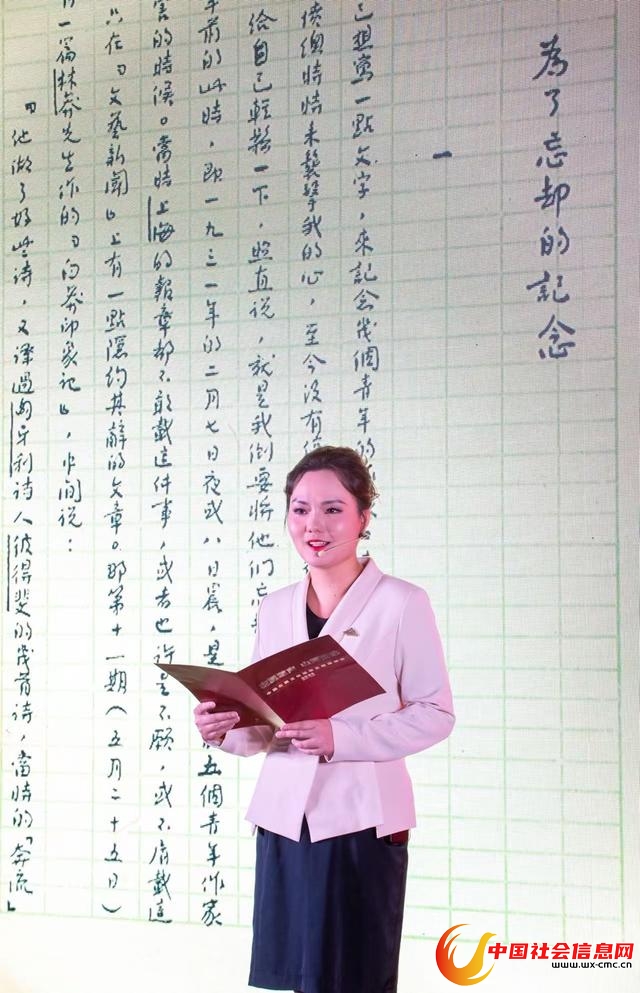 為了忘却的記念
一
己想寫一點文字，來記念幾個青年的
憤總時時來襲擊我的心，至今沒有
給自己輕鬆一下，照直说，就是我倒要將他們忘
年前的此時，即一九三一年的二月七日夜或八日晨，是 五個青年作家
害的時候。當時上海的報章都不敢載這件事，或者也许是不願，或不屑載這
只在『文藝新聞』上有一點隱约其辭的文章。那第十一期（五月二十五日）
一篇林莽先生作的『白莽印象记』，中间说：
『他做了好些诗，又譯過匈牙利诗人彼得斐的幾首诗，當時的『奔流』
中国社会信息网
www.wx-cmc.cn